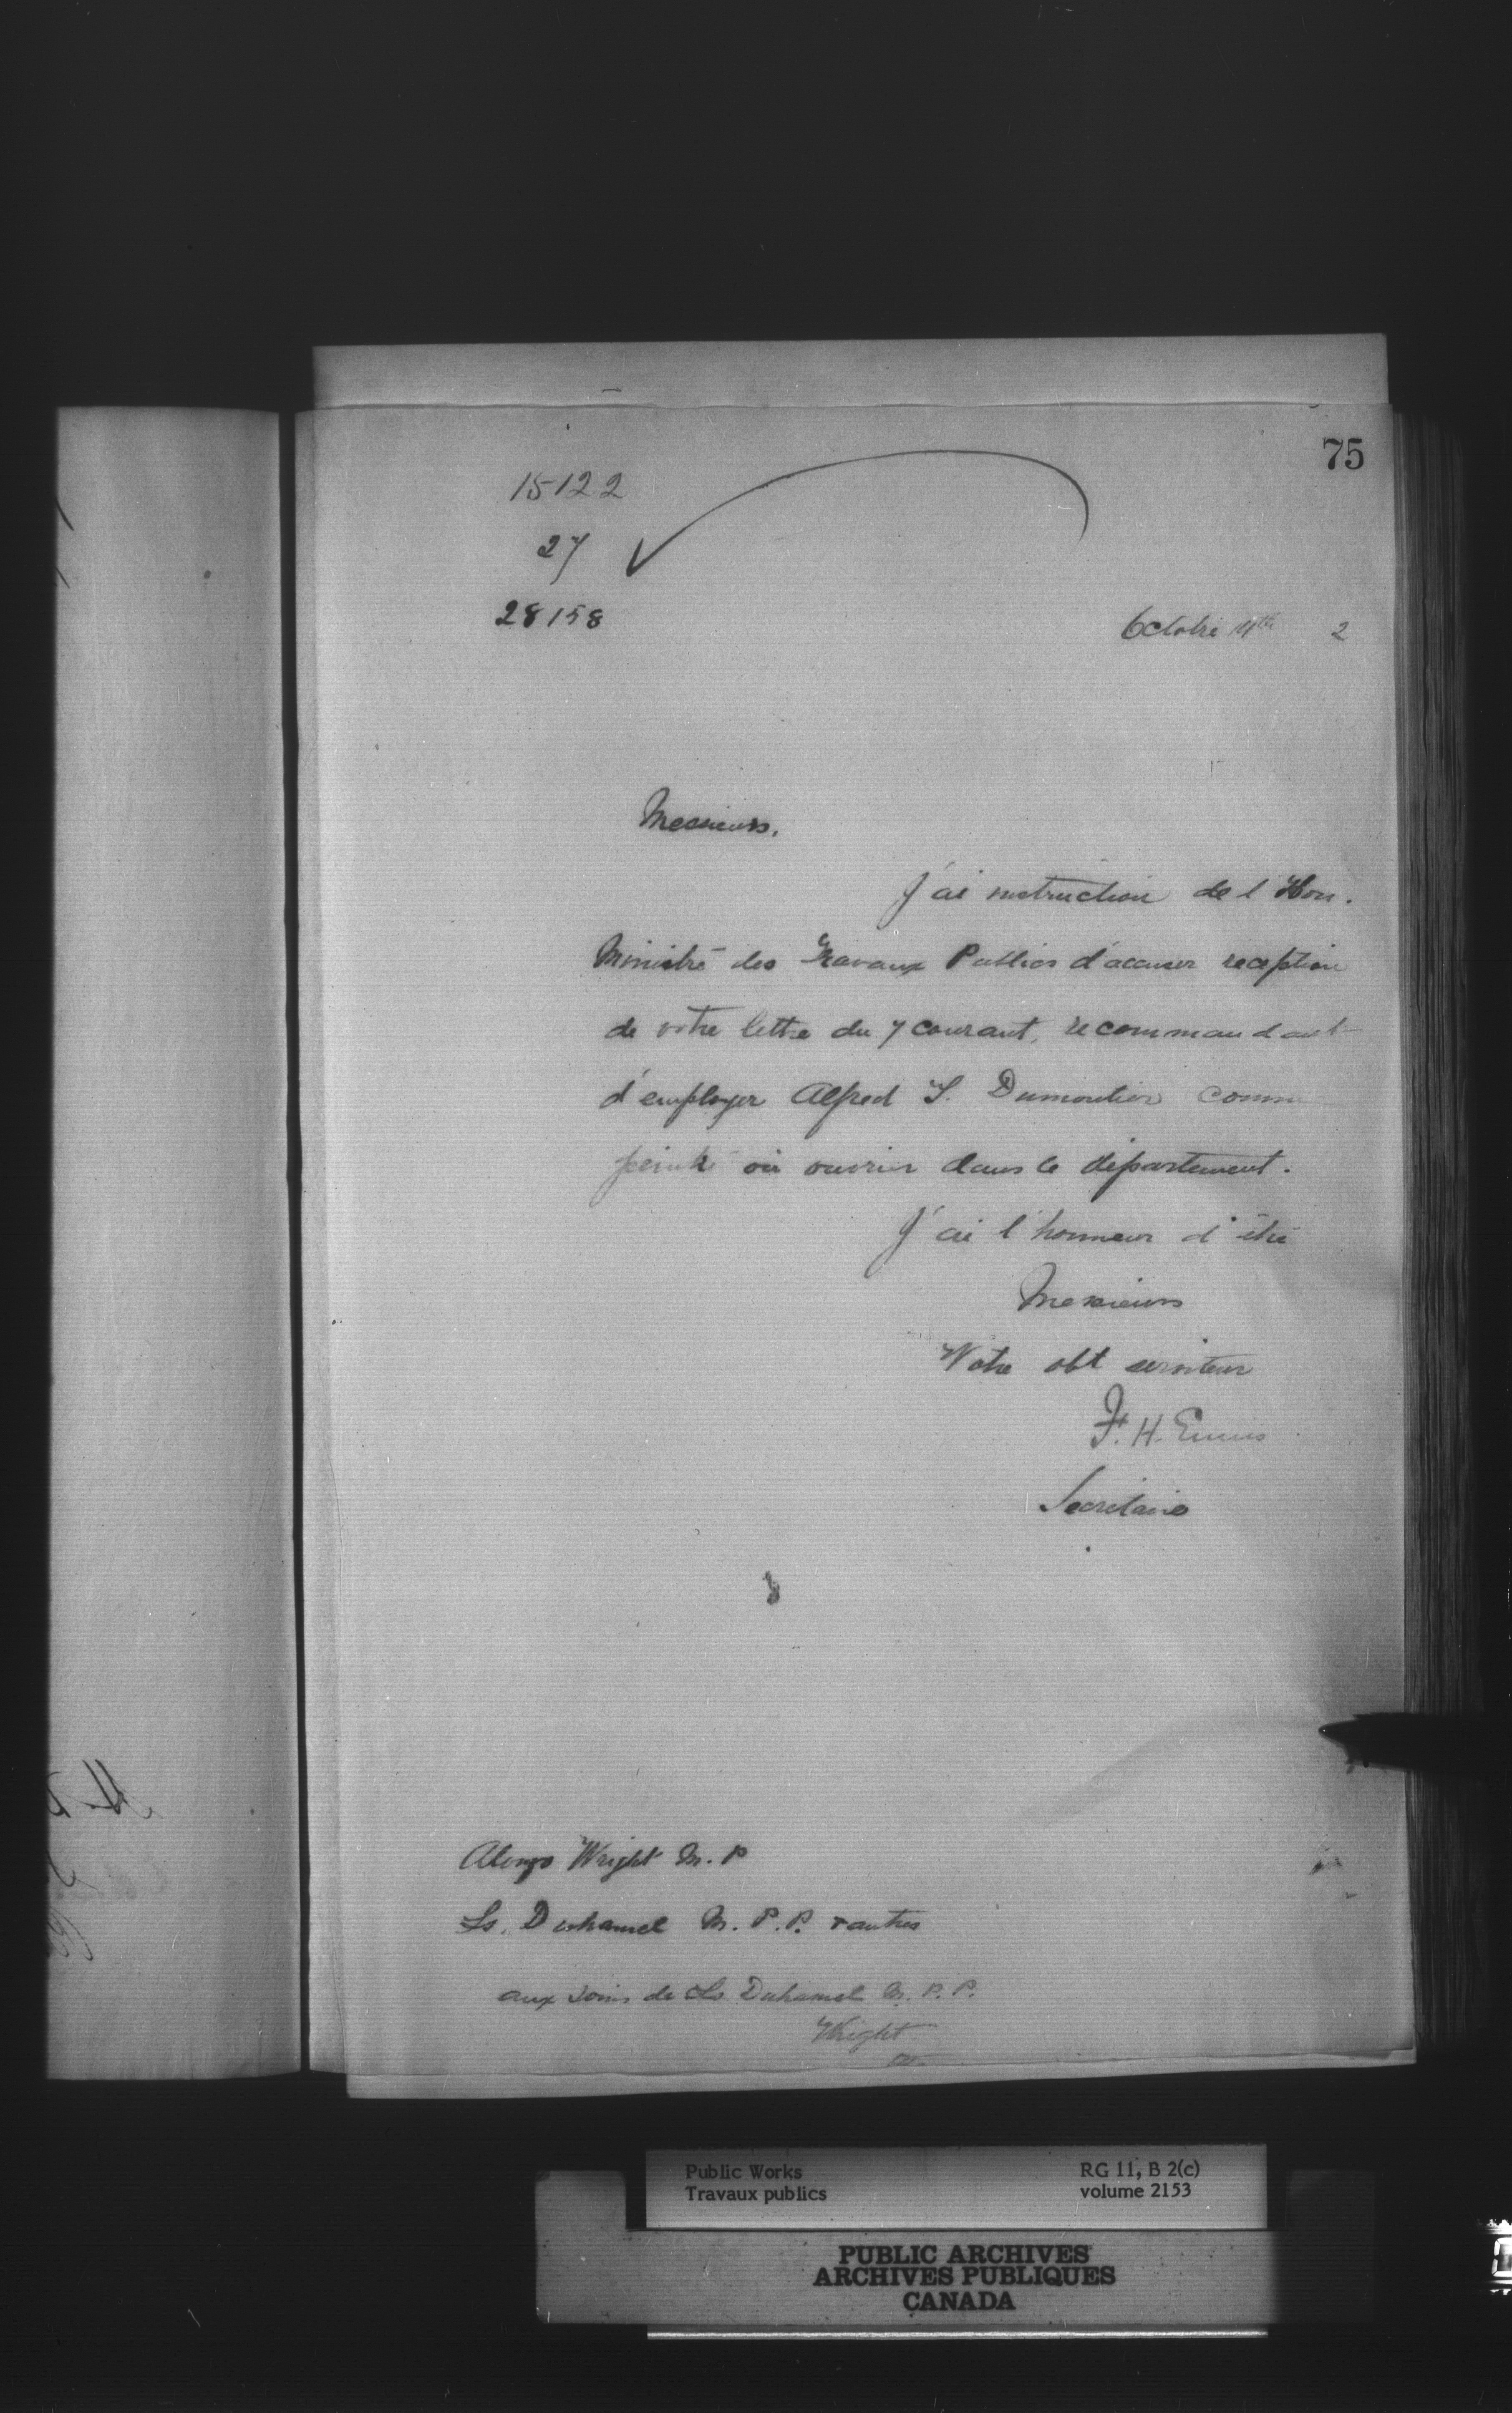 75
15122
27
28158
Octobre 14th 2
Messieurs.
J'ai instruction de l'Hon.
Ministre des Travaux Publics d'accuser reception
de votre lettre du 7 courant, recommandant
d'employer Alfred S. Dumontier comme
peintre ou ouvrier dans le département.
J'ai l'honneur d'être
Messieurs
Votre obt serviteur
F. H. Ennis
Secrétaire
Alonzo Wright M.P
Ls. Duhamel M.P.P. & autres
aux soins de Ls Duhamel M.P.P.
Wright
Public Works RG 11, B 2(c)
Travaux publics volume 2153
PUBLIC ARCHIVES
ARCHIVES PUBLIQUES
CANADA